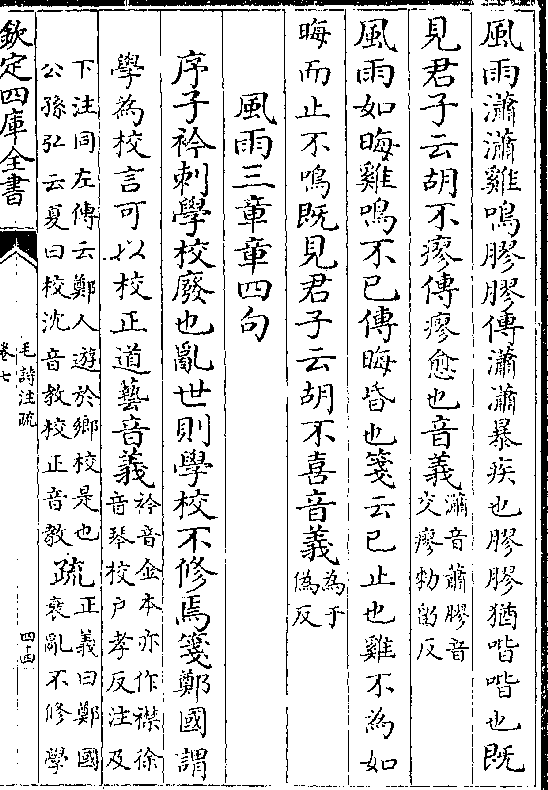 風雨瀟瀟雞鳴膠膠傳瀟瀟暴疾也膠膠猶喈喈也既
見君子云胡不瘳傳瘳愈也音義瀟音蕭膠音
交瘳勑留反
風雨如晦雞鳴不已傳晦昏也箋云已止也雞不為如
晦而止不鳴既見君子云胡不喜音義為于
偽反
風雨三章章四句
序子衿刺學校廢也亂世則學校不修焉箋鄭國謂
學為校言可以校正道藝音義衿音金本亦作襟徐
音琴校戶孝反注及
下注同左傳云鄭人遊於鄉校是也
公孫弘云夏曰校沈音教校正音教疏正義曰鄭國
衰亂不修學
欽定四庫全書
毛詩注疏
卷七
四十四